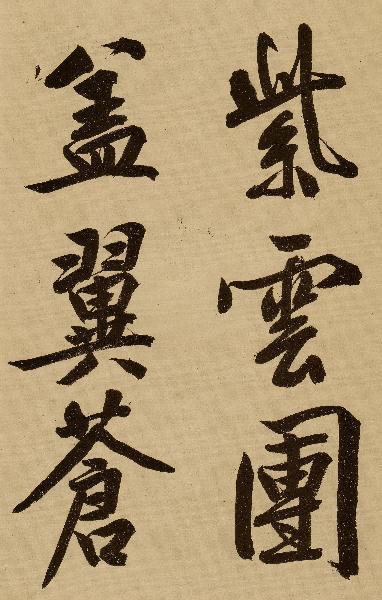 紫雲團
盖翼蒼